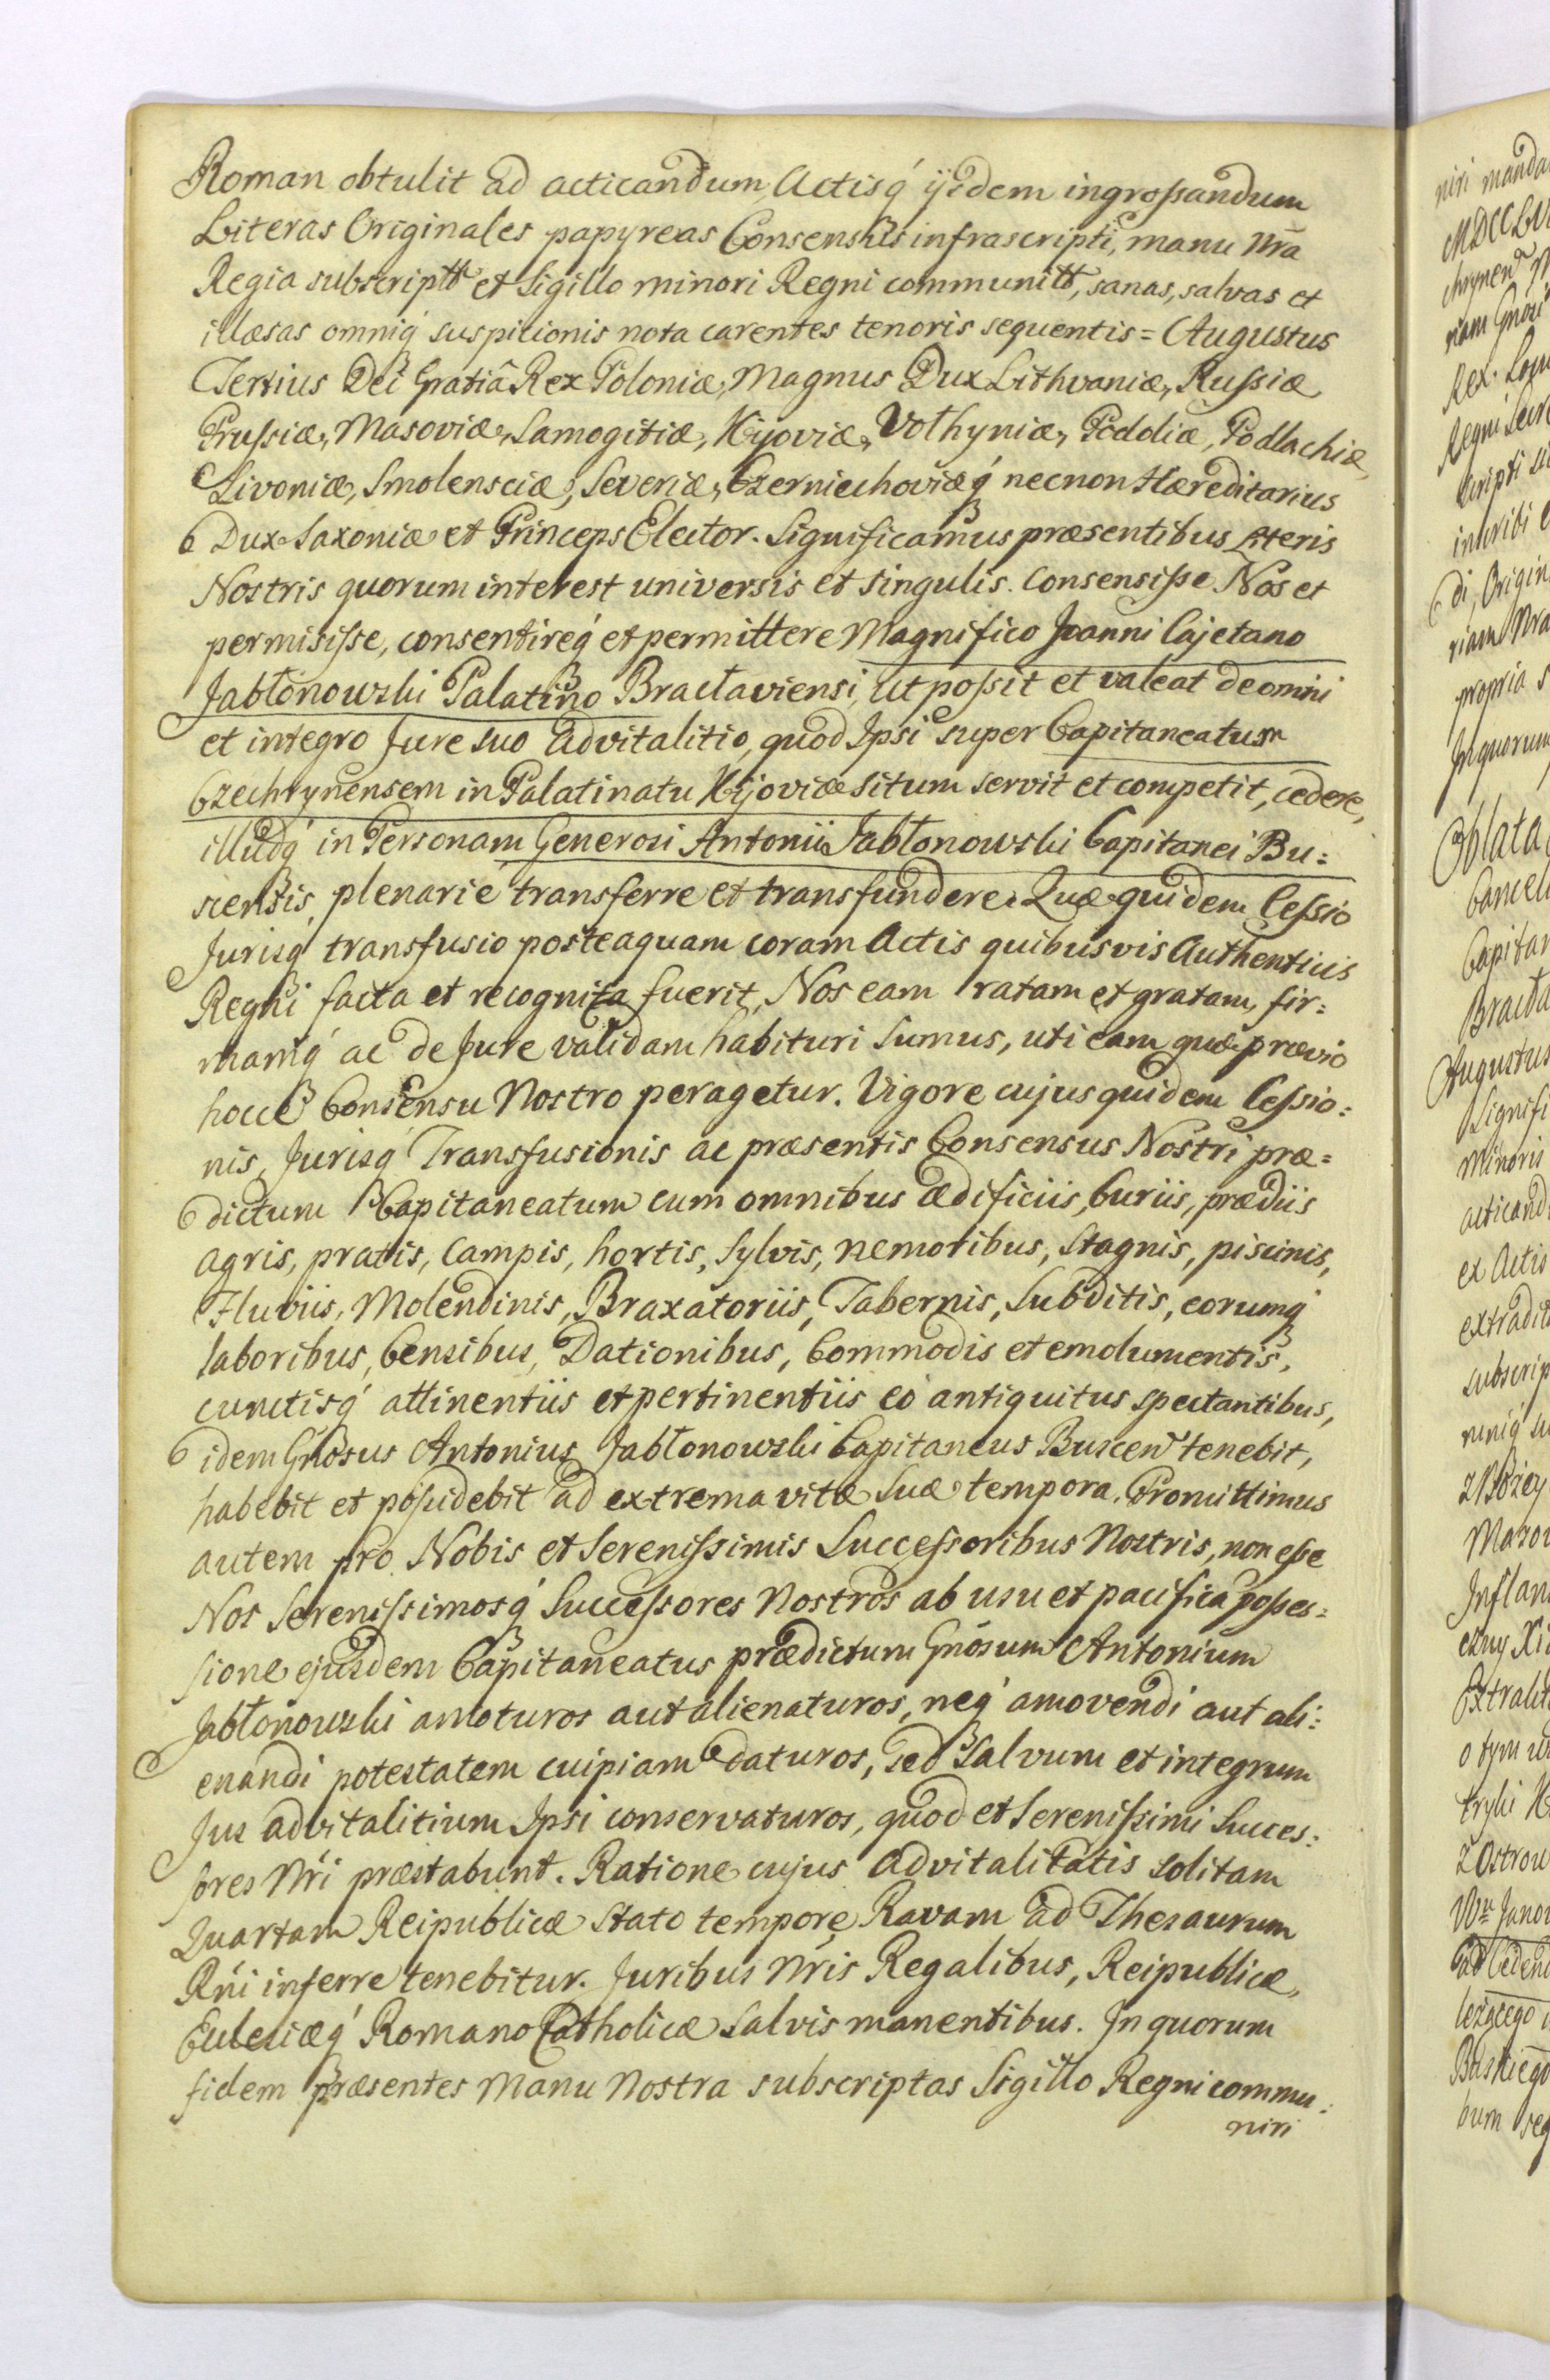 Roman obtulit ad acticandum, Actisq́ ijsdem ingrossandum
Literas Originales papyreas Consensûs infrascripti, manu Nrã
Regia subscriptt et Sigillo minori Regni communitt, sanas, salvas et
illæsas omniq́ suspitionis nota carentes tenoris sequentis = Augustus
Tertius Dei Gratiâ Rex Poloniæ, Magnus Dux Lithvaniæ, Russiæ,
Prussiæ, Masoviæ, Samogitiæ, Kijoviæ, Volhyniæ, Podoliæ, Podlachiæ,
Livoniæ, Smolensciæ, Severiæ, Czerniechoviæq́ necnon Hæreditarius
Dux Saxoniæ et Princeps Elector. Significamus præsentibus Literis
Nostris quorum interest universis et singulis. Consensisse Nos et
permisisse, consentireq́ et permittere Magnifico Joanni Cajetano
Jabłonowski Palatino Bractaviensi, ut possit et valeat de omni
et integro Jure suo advitalitio, quod Ipsi super Capitaneatum
Czechrynensem in Palatinatu Kijoviæ situm servit et competit, cedere,
illudq́ in Personam Generosi Antonii Jabłonowski Capitanei Bu=
scensis, plenarié transferre et transfundere. Quæ quidem Cessio
Jurisq́ transfusio posteaquam coram Actis quibusvis Authenticis
Regni facta et recognita fuerit, Nos eam ratam et gratam, fir=
mamq́ ac de Jure validam habituri sumus, uti eam quæ prævio
hocce Consensu Nostro peragetur. Vigore cujus quidem Cessio=
nis, Jurisq́ Transfusionis ac præsentis Consensus Nostri præ=
dictum Capitaneatum cum omnibus ædificiis, Curiis, prædiis
agris, pratis, Campis, hortis, Sylvis, nemoribus, Stagnis, piscinis,
Fluviis, Molendinis, Braxatoriis, Tabernis, Subditis, eorumq́
laboribus, Censibus, Dationibus, Commodis et emolumentis,
cunctisq́ attinentiis et pertinentiis eó antiquitus spectantibus,
idem Gnosus Antonius Jabłonowski Capitaneus Buscen tenebit,
habebit et possidebit ad extrema vitæ Suæ tempora. Promittimus
autem pro Nobis et Serenissimis Successoribus Nostris, non esse
Nos Serenissimosq́ Successores Nostros ab usu et pacifica posses=
sione ejusdem Capitaneatus prædictum Gnosum Antonium
Jabłonowski amoturos aut alienaturos, neq́ amovendi aut ali=
enandi potestatem cuipiam daturos, Sed Salvum et integrum
Jus advitalitium Ipsi conservaturos, quod et Serenissimi Succes=
sores Nri præstabunt. Ratione cujus advitalitatis solitam
Quartam Reipublicæ stato tempore Ravam ad Thesaurum
Rni inferre tenebitur. Juribus Nris Regalibus, Reipublicæ,
Ecclesiæq́ Romano Catholicæ Salvis manentibus. In quorum
fidem præsentes Manu Nostra subscriptas Sigillo Regni commu=
niri
niri manda
MDCCLVI
riam Gnosi
Rex.
Regni Secre
scripti
inscribi
di, Origin
riam Nra
propria s
In quorum
Oblata
Cancell
Capitan
Bracta
Augustus
Signifi
minoris
acticand
ex Actis
extradit
subscrip
mniq́ su
z Bożey
Mazow
Inflan
Extradit
o tym
z Ostrow
Wm Janow
bum seq